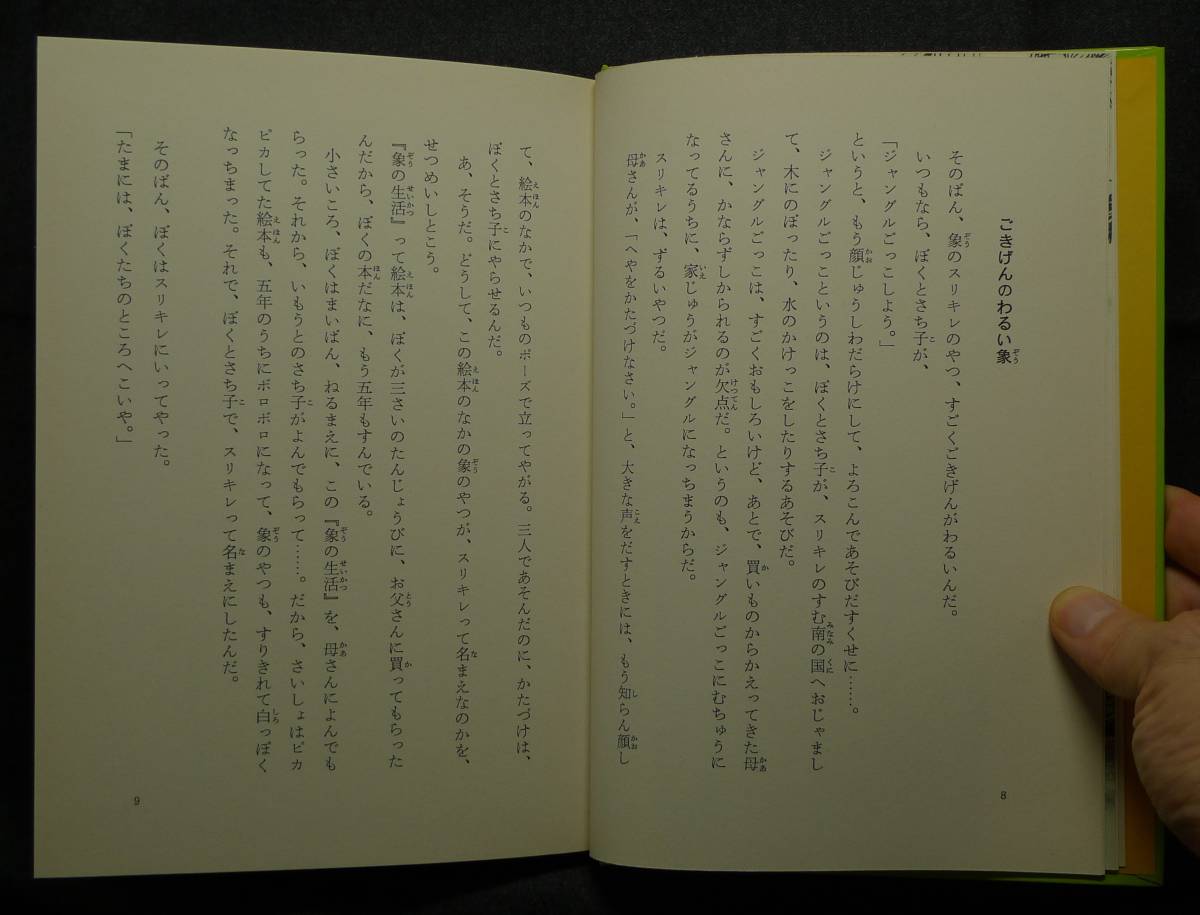 ごきげんのわるい象
そのばん、象のスリキレのやつ、すごくごきげんがわるいんだ。
いつもなら、ぼくとさち子が、
「ジャングルごっこしよう。」
というと、もう顔じゅうしわだらけにして、よろこんであそびだすくせに……。
ジャングルごっこというのは、ぼくとさち子が、スリキレのすむ南の国へおじゃまし
て、木にのぼったり、水のかけっこをしたりするあそびだ。
ジャングルごっこは、すごくおもしろいけど、あとで、買いものからかえってきた母
さんに、かならずしかられるのが欠点だ。というのも、ジャングルごっこにむちゅうに
なってるうちに、家じゅうがジャングルになっちまうからだ。
スリキレは、ずるいやつだ。
母さんが、「へやをかたづけなさい。」と、大きな声をだすときには、もう知らん顔し
8
て、絵本のなかで、いつものポーズで立ってやがる。三人であそんだのに、かたづけは、
ぼくとさち子にやらせるんだ。
あ、そうだ。どうして、この絵本のなかの象のやつが、スリキレって名まえなのかを、
せつめいしとこう。
『象の生活』って絵本は、ぼくが三さいのたんじょうびに、お父さんに買ってもらった
んだから、ぼくの本だなに、もう五年もすんでいる。
小さいころ、ぼくはまいばん、ねるまえに、この『象の生活』を、母さんによんでも
らった。それから、いもうとのさち子がよんでもらって……。だから、さいしょはピカ
ピカしてた絵本も、五年のうちにボロボロになって、象のやつも、すりきれて白っぽく
なっちまった。それで、ぼくとさち子で、スリキレって名まえにしたんだ。
そのばん、ぼくはスリキレにいってやった。
「たまには、ぼくたちのところへこいや。」
9